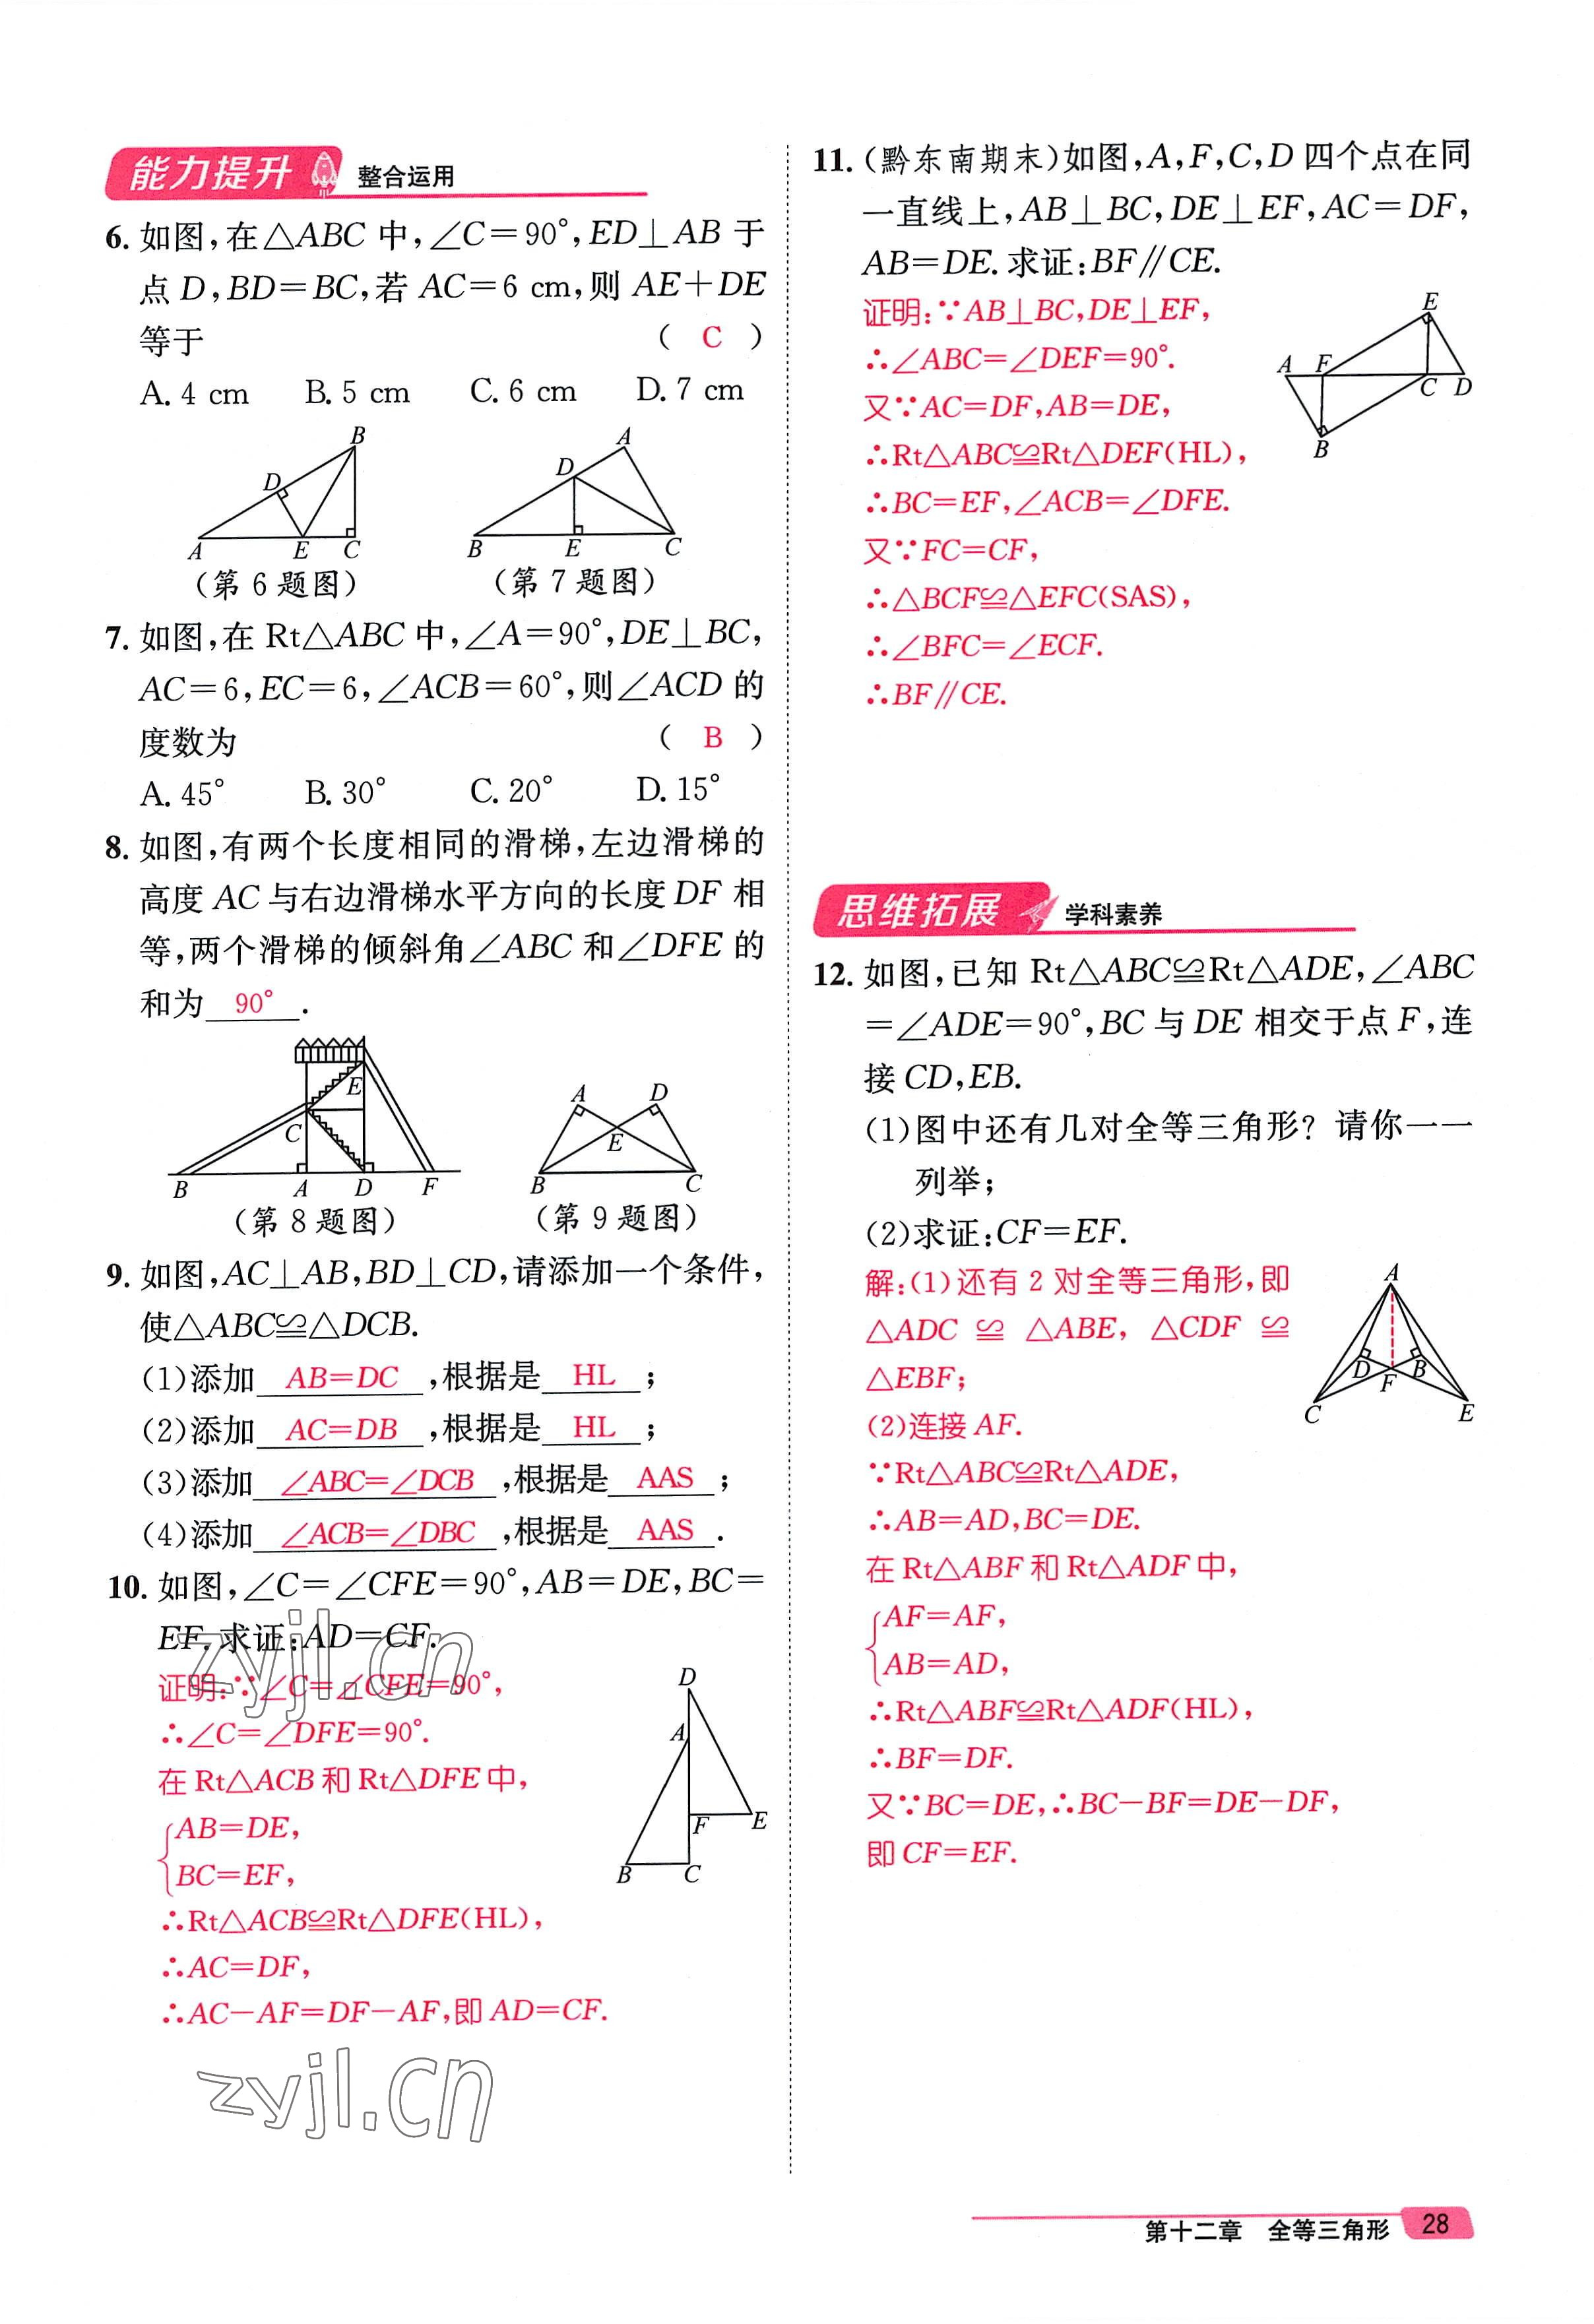 能力提升 整合运用
6. 如图,在△ABC 中,∠C=90°,ED⊥AB 于
点 D,BD=BC,若 AC=6 cm,则 AE+DE
等于 ( C )
A. 4 cm B. 5 cm C. 6 cm D. 7 cm
B
D
A E C
(第 6 题图)
A
D
B E C
(第 7 题图)
7. 如图,在 Rt△ABC 中,∠A=90°,DE⊥BC,
AC=6,EC=6,∠ACB=60°,则∠ACD 的
度数为 ( B )
A. 45° B. 30° C. 20° D. 15°
8. 如图,有两个长度相同的滑梯,左边滑梯的
高度 AC 与右边滑梯水平方向的长度 DF 相
等,两个滑梯的倾斜角∠ABC 和∠DFE 的
和为 90° .
E
C
B A D F
(第 8 题图)
A D
E
B C
(第 9 题图)
9. 如图,AC⊥AB,BD⊥CD,请添加一个条件,
使△ABC≌△DCB.
(1)添加 AB=DC ,根据是 HL ;
(2)添加 AC=DB ,根据是 HL ;
(3)添加 ∠ABC=∠DCB ,根据是 AAS ;
(4)添加 ∠ACB=∠DBC ,根据是 AAS .
10. 如图,∠C=∠CFE=90°,AB=DE,BC=
EF.求证:AD=CF.
zyjl.cn
证明:∵∠C=∠CFE=90°,
∴∠C=∠DFE=90°.
在 Rt△ACB 和 Rt△DFE 中,
AB=DE,
BC=EF,
∴Rt△ACB≌Rt△DFE(HL),
∴AC=DF,
∴AC-AF=DF-AF,即 AD=CF.
D
A
F E
B C
zyjl.cn
11. (黔东南期末)如图,A,F,C,D 四个点在同
一直线上,AB⊥BC,DE⊥EF,AC=DF,
AB=DE.求证:BF∥CE.
证明:∵AB⊥BC,DE⊥EF,
∴∠ABC=∠DEF=90°.
又∵AC=DF,AB=DE,
∴Rt△ABC≌Rt△DEF(HL),
∴BC=EF,∠ACB=∠DFE.
又∵FC=CF,
∴△BCF≌△EFC(SAS),
∴∠BFC=∠ECF.
∴BF∥CE.
E
A F
C D
B
思维拓展 学科素养
12. 如图,已知 Rt△ABC≌Rt△ADE,∠ABC
=∠ADE=90°,BC 与 DE 相交于点 F,连
接 CD,EB.
(1)图中还有几对全等三角形? 请你一一
列举;
(2)求证:CF=EF.
解:(1)还有 2 对全等三角形,即
△ADC ≌ △ABE, △CDF ≌
△EBF;
(2)连接 AF.
∵Rt△ABC≌Rt△ADE,
∴AB=AD,BC=DE.
在 Rt△ABF 和 Rt△ADF 中,
AF=AF,
AB=AD,
∴Rt△ABF≌Rt△ADF(HL),
∴BF=DF.
又∵BC=DE,∴BC-BF=DE-DF,
即 CF=EF.
A
D F B
C E
第十二章 全等三角形 28